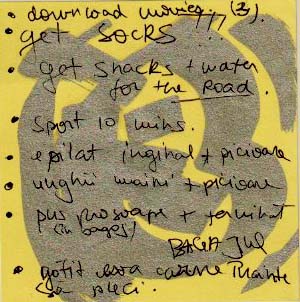 • download movies!!! (3).
• get SOCKS!
• get snacks + water
for the Road.
• Sport 10 mins.
• epilat inghinal + picioare
• unghii maini + picioare
• pus prosoape + terminat
(in bagaj)
BAGAJul
• gatit ceva carne inainte
sa pleci.